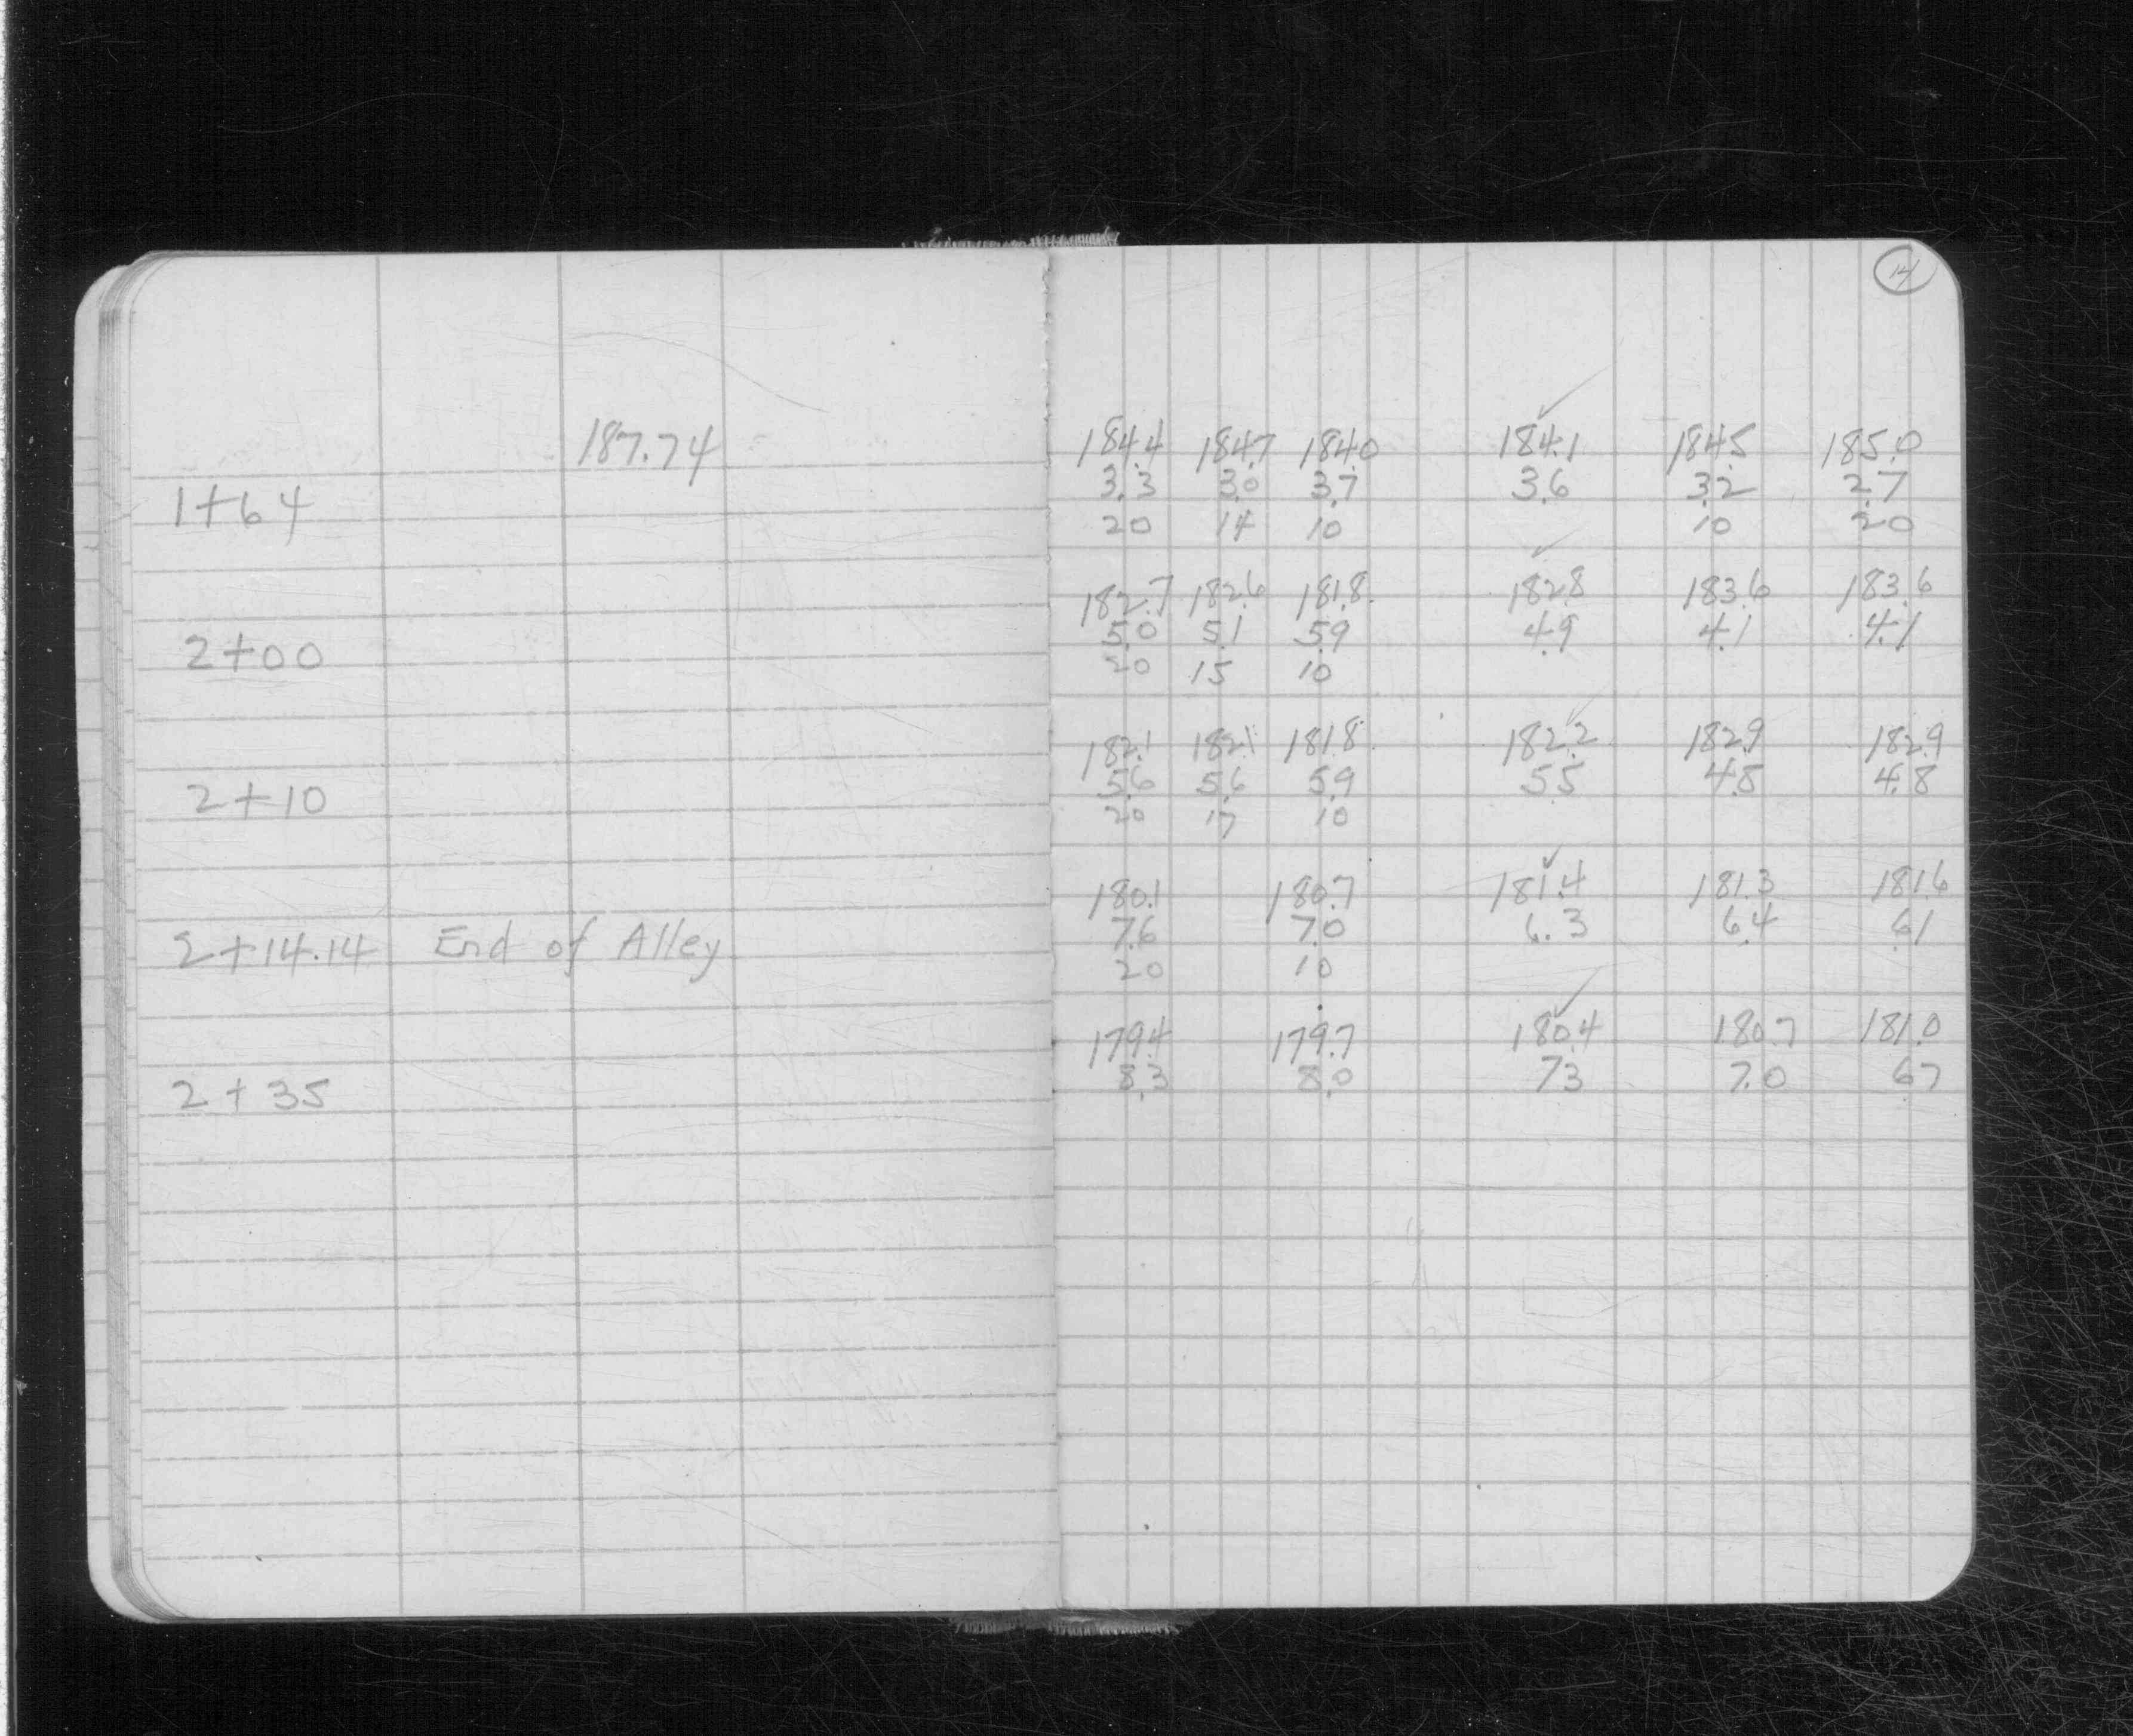 14
187.74 184.4 184.7 184.0 184.1 184.5 185.0
1+64 3.3 3.0 3.7 3.6 3.2 2.7
20 14 10 10 20
182.7 182.6 181.8 182.8 183.6 183.6
2+00 5.0 5.1 5.9 4.9 4.1 4.1
20 15 10
182.1 182.1 181.8 182.2 182.9 182.9
2+10 5.6 5.6 5.9 5.5 4.8 4.8
20 17 10
180.1 180.7 181.4 181.3 181.6
2+14.14 End of Alley 7.6 7.0 6.3 6.4 6.1
20 10
179.4 179.7 180.4 180.7 181.0
2+35 8.3 8.0 7.3 7.0 6.7